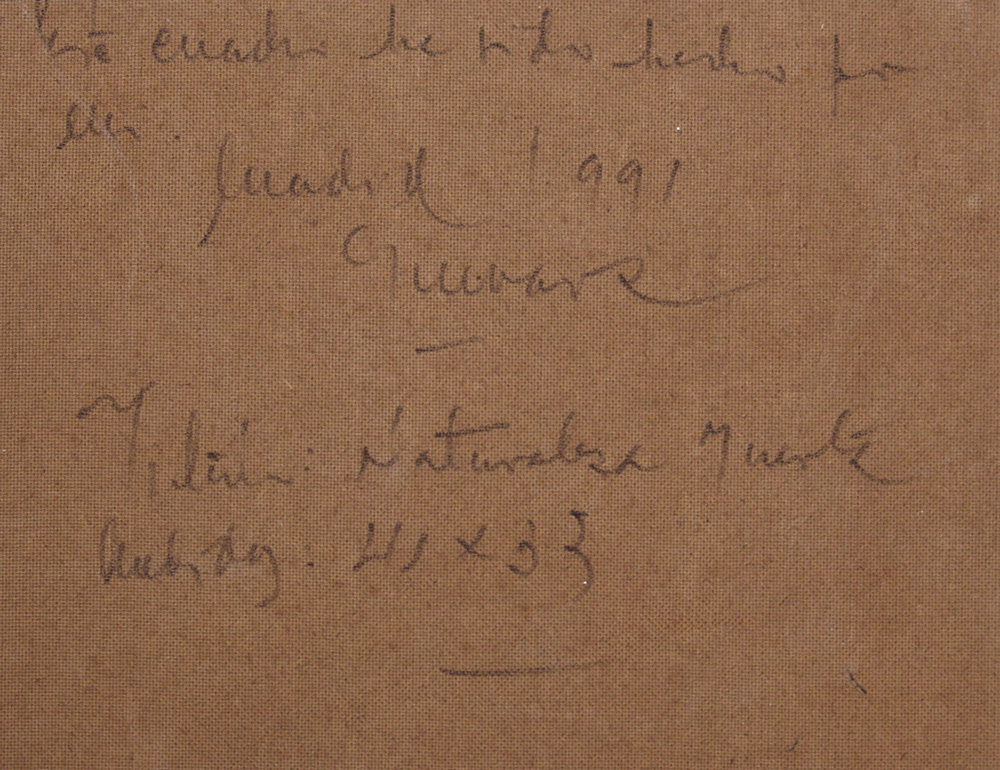 Este cuadro ha sido hecho por
mi.
Madrid 1991
Título: Naturaleza Muerta
Medidas: 41 x 33